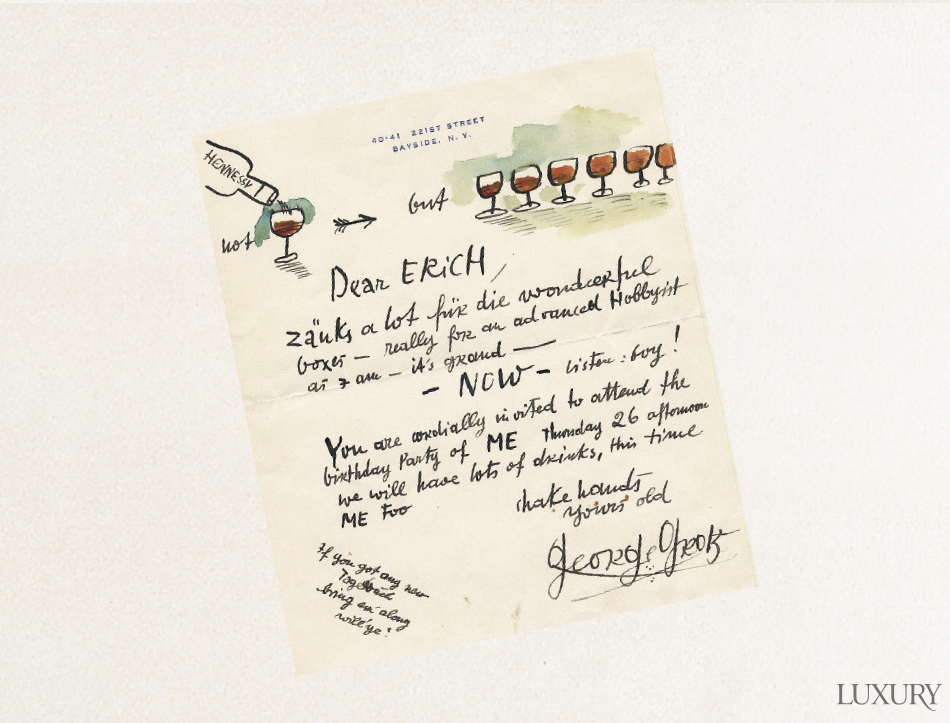 40-41 221ST STREET
BAYSIDE, N.Y.
HENNESSY
not
but
Dear ERICH,
zänks a lot für die wonderful
boxes – really for an advanced Hobbyist
as I am – it's grand —
– NOW – listen: boy!
You are cordially invited to attend the
birthday Party of ME Thursday 26 afternoon
we will have lots of drinks, this time
ME too
shake hands
yours old
George Grosz
if you got any new
bring em along
will ye!
LUXURY